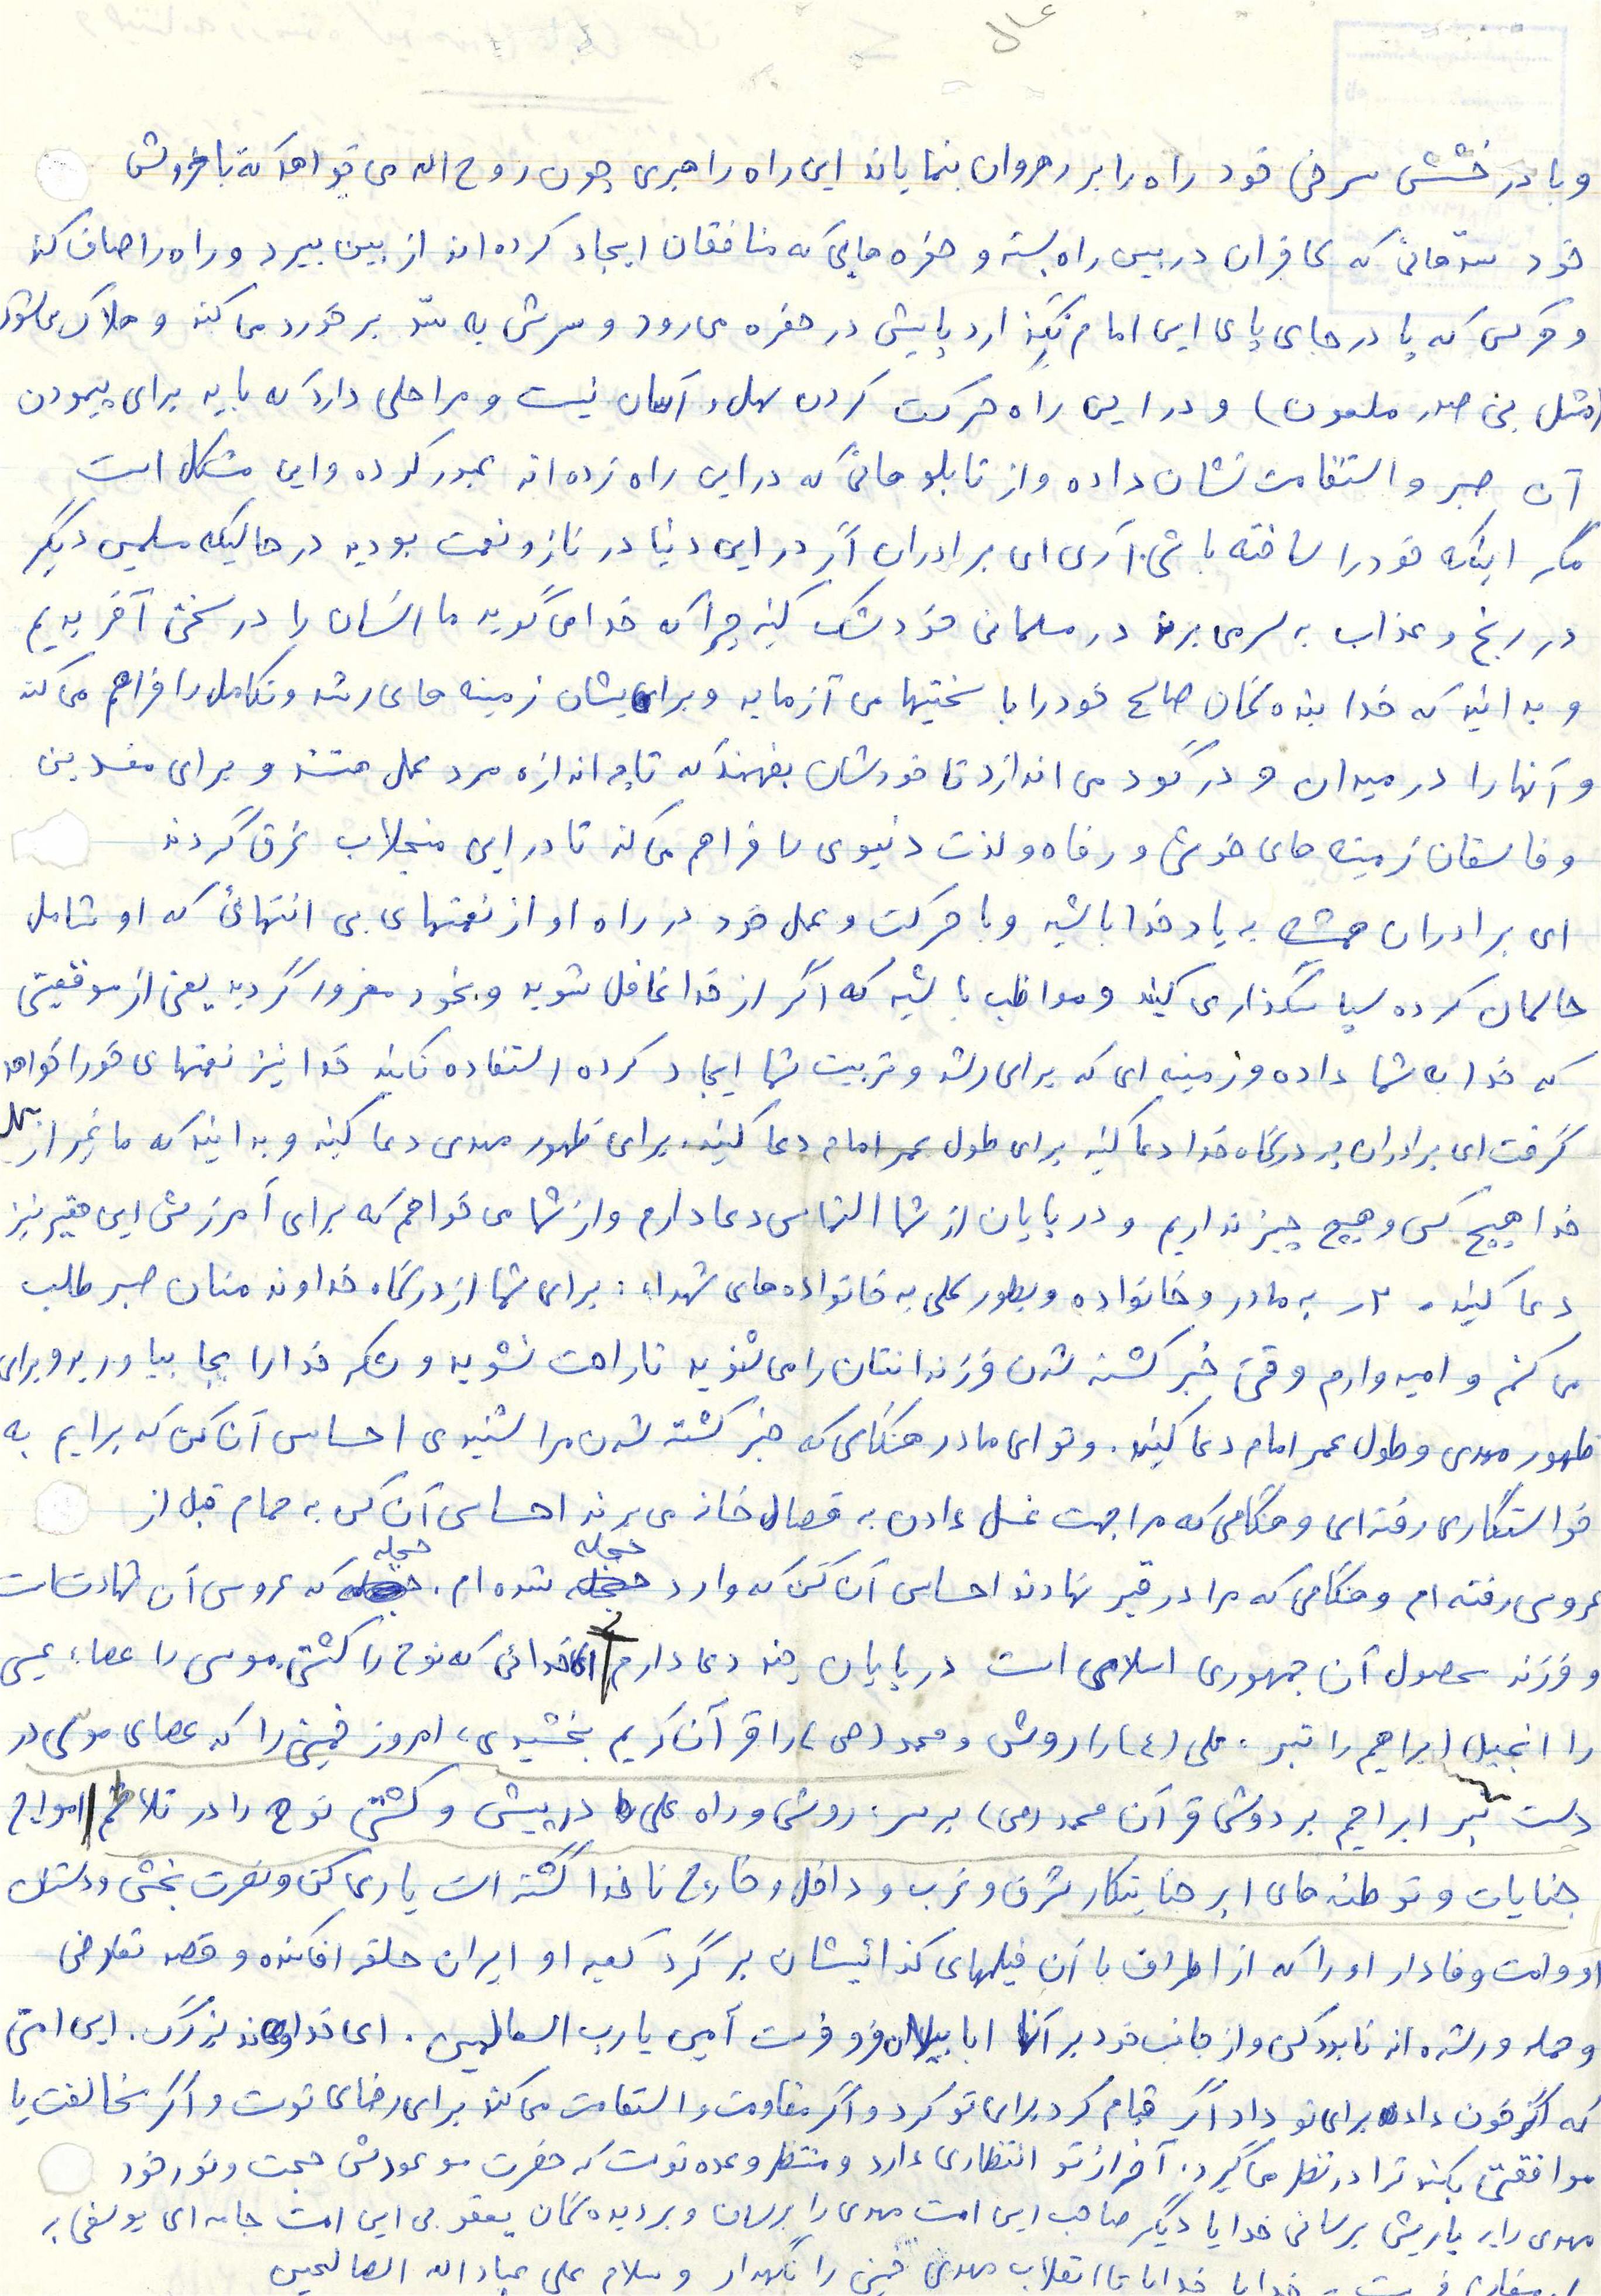 و با درخشش سرخی خود راه را بر رهروان بنمایاند این راه راهبری چون روح اله می خواهد که با خروش
خود سدهائی که کافران در بین راه بسته و حفره هایی که منافقان ایجاد کرده اند از بین ببرد و راه را صاف کند
و هر کس که پا در جای پای این امام نگذارد پایش در حفره می رود و سرش به سدّ برخورد می کند و هلاک می شود
(مثل بنی صدر ملعون) و در این راه حرکت کردن سهل و آسان نیست و مراحلی دارد که باید برای پیمودن
آن صبر و استقامت نشان داده و از تابلوهائی که در این راه زده اند عبور کرده و این مشکل است
مگر اینکه خود را ساخته باشی. آری ای برادران اگر در این دنیا در ناز و نعمت بودید در حالیکه مسلمین دیگر
در رنج و عذاب به سر می برند در مسلمانی خود شک کنید چرا که خدا می گوید ما انسان را در سختی آفریدیم
و بدانید که خدا بنده گان صالح خود را با سختیها می آزماید و برایشان زمینه های رشد و تکامل را فراهم می کند
و آنها را در میدان و در گود می اندازد تا خودشان بفهمند که تا چه اندازه مرد عمل هستند و برای مفسدین
و فاسقان زمینه های خوشی و رفاه و لذت دنیوی را فراهم می کند تا در این منجلاب غرق گردند
ای برادران همیشه به یاد خدا باشید و با حرکت و عمل خود در راه او از نعمتهای بی انتهائی که او شامل
حالمان کرده سپاسگذاری کنید و مواظب باشید که اگر از خدا غافل شوید و بخود مغرور گردید یعنی از موقعیتی
که خدا به شما داده و زمینه ای که برای رشد و تربیت شما ایجاد کرده استفاده نکنید خدا نیز نعمتهای خود را خواهد
گرفت ای برادران بدرگاه خدا دعا کنید برای طول عمر امام دعا کنید. برای ظهور مهدی دعا کنید و بدانید که ما غیر از
خدا هیچ کس و هیچ چیز نداریم و در پایان از شما التماس دعا دارم و از شما می خواهم که برای آمرزش این حقیر نیز
دعا کنید. ۲ـ به مادر و خانواده و بطور کلی به خانواده های شهداء: برای شما از درگاه خداوند منان صبر طلب
می کنم و امیدوارم وقتی خبر کشته شدن فرزندانتان را می شنوید ناراحت نشوید و شکر خدا را بجا بیاورید و برای
ظهور مهدی و طول عمر امام دعا کنید. و تو ای مادر هنگامی که خبر کشته شدن مرا شنیدی احساس آن کن که برایم به
خواستگاری رفته ای و هنگامی که مرا جهت غسل دادن به غسال خانه می برند احساس آن کن به حمام قبل از
عروسی رفته ام و هنگامی که مرا در قبر نهادند احساس آن کن که وارد حجله شده ام. حجله که عروس آن شهادتست
و فرزند محصول آن جمهوری اسلامی است در پایان چند دعا دارم ای خدائی که نوح را کشتی، موسی را عصا، عیسی
را انجیل ابراهیم را تبر. علی (ع) را روش و محمد (ص) را قرآن کریم بخشیدی، امروز خمینی را که عصای موسی در
دست تبر ابراهیم بر دوش قرآن محمد (ص) بر سر، روش و راه علی در پیش و کشتی نوح را در تلاطم امواج
جنایات و توطئه های ابر جنایتکار شرق و غرب و داخل و خارج ناخدا گشته است یاری کن و نصرت بخش و دستان
او و امت وفادار او را که از اطراف با آن فیلهای کذائیشان بر گرد کعبه او ایران حلقه افکنده و قصد تلافی
و حمله ور شده اند نابود کن و از جانب خود بر آنها ابابیلان فرو فرست آمین یا رب العالمین. ای خداوند بزرگ. این امتی
که اگر خون داد برای تو داد اگر قیام کرد برای تو کرد و اگر مقاومت و استقامت می کند برای رضای توست و اگر مخالفت یا
موافقتی بکند ترا در نظر می گیرد. آخر از تو انتظاری دارد و منتظر وعده توست که حضرت موعودش حجت و نور خود
مهدی را به یاریش برسانی خدایا دیگر صاحب این امت مهدی را برسان و بر دیده گان یعقوبی این امت جامه ای یوسفی به
خدایا خدایا تا انقلاب مهدی خمینی را نگهدار و سلام علی عباد الله الصالحین